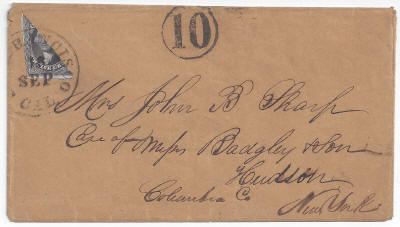 10
FRANCISCO
SEP
CAL
Mrs John B Sharp
Care of Messrs Badgley & Son
Hudson
Columbia Co
New York